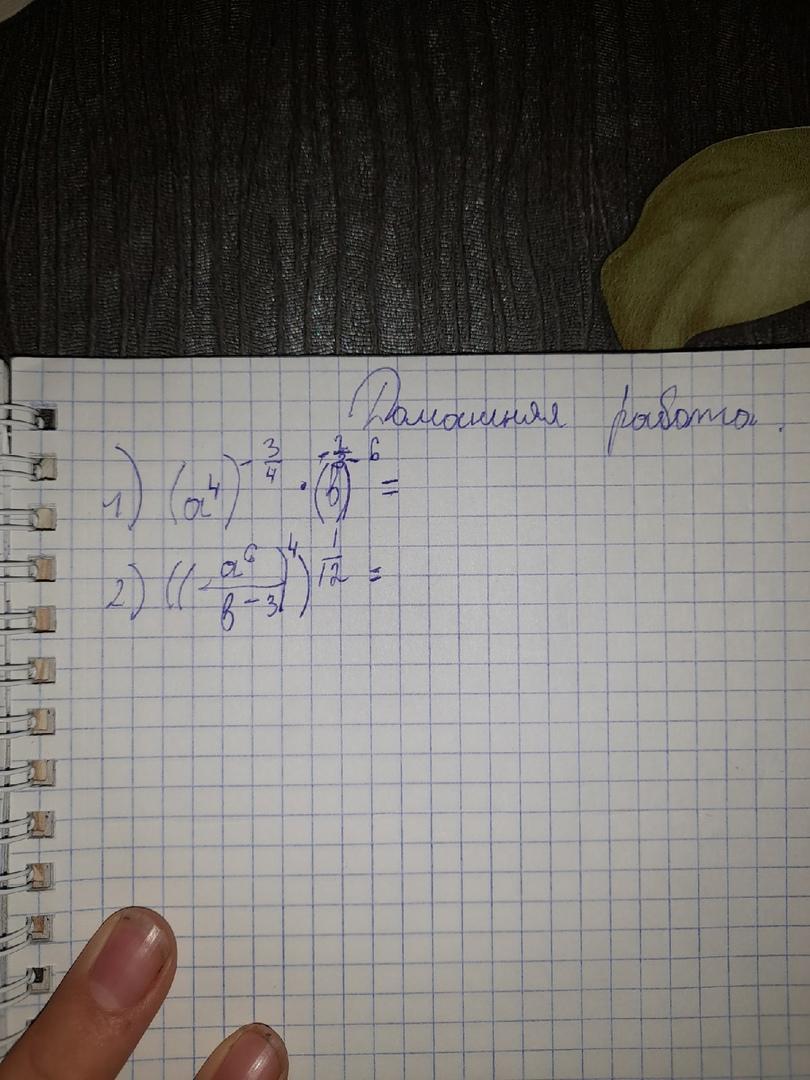 Домашняя работа.
1) (a⁴)^(-3/4) · (b^(-2/3))^(-6) =
2) ((-a⁶/b^(-3))⁴)^(1/12) =